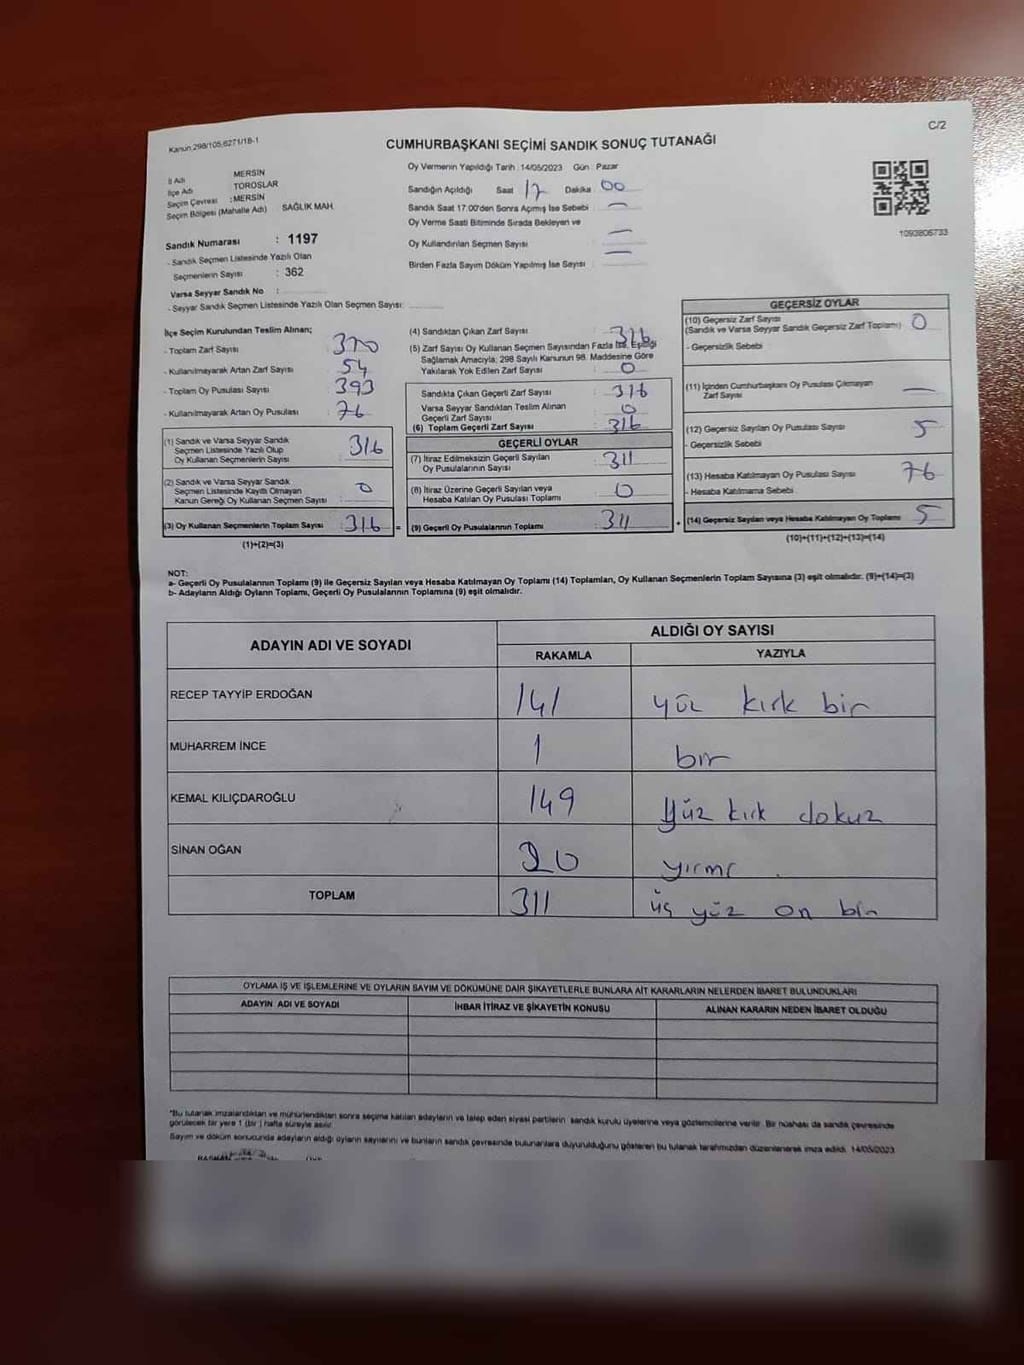 Kanun 298/105,6271/18-1
C/2
CUMHURBAŞKANI SEÇİMİ SANDIK SONUÇ TUTANAĞI
İl Adı MERSİN
İlçe Adı TOROSLAR
Seçim Çevresi : MERSİN
Seçim Bölgesi (Mahalle Adı) SAĞLIK MAH.
Sandık Numarası : 1197
- Sandık Seçmen Listesinde Yazılı Olan
Seçmenlerin Sayısı : 362
Varsa Seyyar Sandık No :
- Seyyar Sandık Seçmen Listesinde Yazılı Olan Seçmen Sayısı:
Oy Vermenin Yapıldığı Tarih :14/05/2023 Gün : Pazar
Sandığın Açıldığı Saat 17 Dakika 00
Sandık Saat 17:00'den Sonra Açılmış İse Sebebi : —
Oy Verme Saati Bitiminde Sırada Bekleyen ve
Oy Kullandırılan Seçmen Sayısı : —
Birden Fazla Sayım Döküm Yapılmış İse Sayısı : —
1093806733
İlçe Seçim Kurulundan Teslim Alınan;
- Toplam Zarf Sayısı : 370
- Kullanılmayarak Artan Zarf Sayısı : 54
- Toplam Oy Pusulası Sayısı : 393
- Kullanılmayarak Artan Oy Pusulası : 76
(1) Sandık ve Varsa Seyyar Sandık
Seçmen Listesinde Yazılı Olup
Oy Kullanan Seçmenlerin Sayısı : 316
(2) Sandık ve Varsa Seyyar Sandık
Seçmen Listesinde Kayıtlı Olmayan
Kanun Gereği Oy Kullanan Seçmen Sayısı : 0
(3) Oy Kullanan Seçmenlerin Toplam Sayısı : 316 =
(1)+(2)=(3)
(4) Sandıktan Çıkan Zarf Sayısı : 316
(5) Zarf Sayısı Oy Kullanan Seçmen Sayısından Fazla İse, Eşitliği
Sağlamak Amacıyla; 298 Sayılı Kanunun 98. Maddesine Göre
Yakılarak Yok Edilen Zarf Sayısı : 0
Sandıkta Çıkan Geçerli Zarf Sayısı : 316
Varsa Seyyar Sandıktan Teslim Alınan
Geçerli Zarf Sayısı : 0
(6) Toplam Geçerli Zarf Sayısı : 316
GEÇERLİ OYLAR
(7) İtiraz Edilmeksizin Geçerli Sayılan
Oy Pusulalarının Sayısı : 311
(8) İtiraz Üzerine Geçerli Sayılan veya
Hesaba Katılan Oy Pusulası Toplamı : 0
(9) Geçerli Oy Pusulalarının Toplamı : 311 +
GEÇERSİZ OYLAR
(10) Geçersiz Zarf Sayısı
(Sandık ve Varsa Seyyar Sandık Geçersiz Zarf Toplamı) : 0
- Geçersizlik Sebebi
(11) İçinden Cumhurbaşkanı Oy Pusulası Çıkmayan
Zarf Sayısı : —
(12) Geçersiz Sayılan Oy Pusulası Sayısı : 5
- Geçersizlik Sebebi
(13) Hesaba Katılmayan Oy Pusulası Sayısı : 76
- Hesaba Katılmama Sebebi
(14) Geçersiz Sayılan veya Hesaba Katılmayan Oy Toplamı : 5
(10)+(11)+(12)+(13)=(14)
NOT:
a- Geçerli Oy Pusulalarının Toplamı (9) ile Geçersiz Sayılan veya Hesaba Katılmayan Oy Toplamı (14) Toplamları, Oy Kullanan Seçmenlerin Toplam Sayısına (3) eşit olmalıdır. (9)+(14)=(3)
b- Adayların Aldığı Oyların Toplamı, Geçerli Oy Pusulalarının Toplamına (9) eşit olmalıdır.
ADAYIN ADI VE SOYADI ALDIĞI OY SAYISI
RAKAMLA YAZIYLA
RECEP TAYYİP ERDOĞAN 141 yüz kırk bir
MUHARREM İNCE 1 bir
KEMAL KILIÇDAROĞLU 149 yüz kırk dokuz
SİNAN OĞAN 20 yirmi
TOPLAM 311 üç yüz on bir
OYLAMA İŞ VE İŞLEMLERİNE VE OYLARIN SAYIM VE DÖKÜMÜNE DAİR ŞİKAYETLERLE BUNLARA AİT KARARLARIN NELERDEN İBARET BULUNDUKLARI
ADAYIN ADI VE SOYADI İHBAR İTİRAZ VE ŞİKAYETİN KONUSU ALINAN KARARIN NEDEN İBARET OLDUĞU
*Bu tutanak imzalandıktan ve mühürlendikten sonra seçime katılan adayların ve talep eden siyasi partilerin sandık kurulu üyelerine veya gözlemcilerine verilir. Bir nüshası da sandık çevresinde
görülecek bir yere 1 (bir) hafta süreyle asılır.
Sayım ve döküm sonucunda adayların aldığı oyların sayılarını ve bunların sandık çevresinde bulunanlara duyurulduğunu gösteren bu tutanak tarafımızdan düzenlenerek imza edildi. 14/05/2023